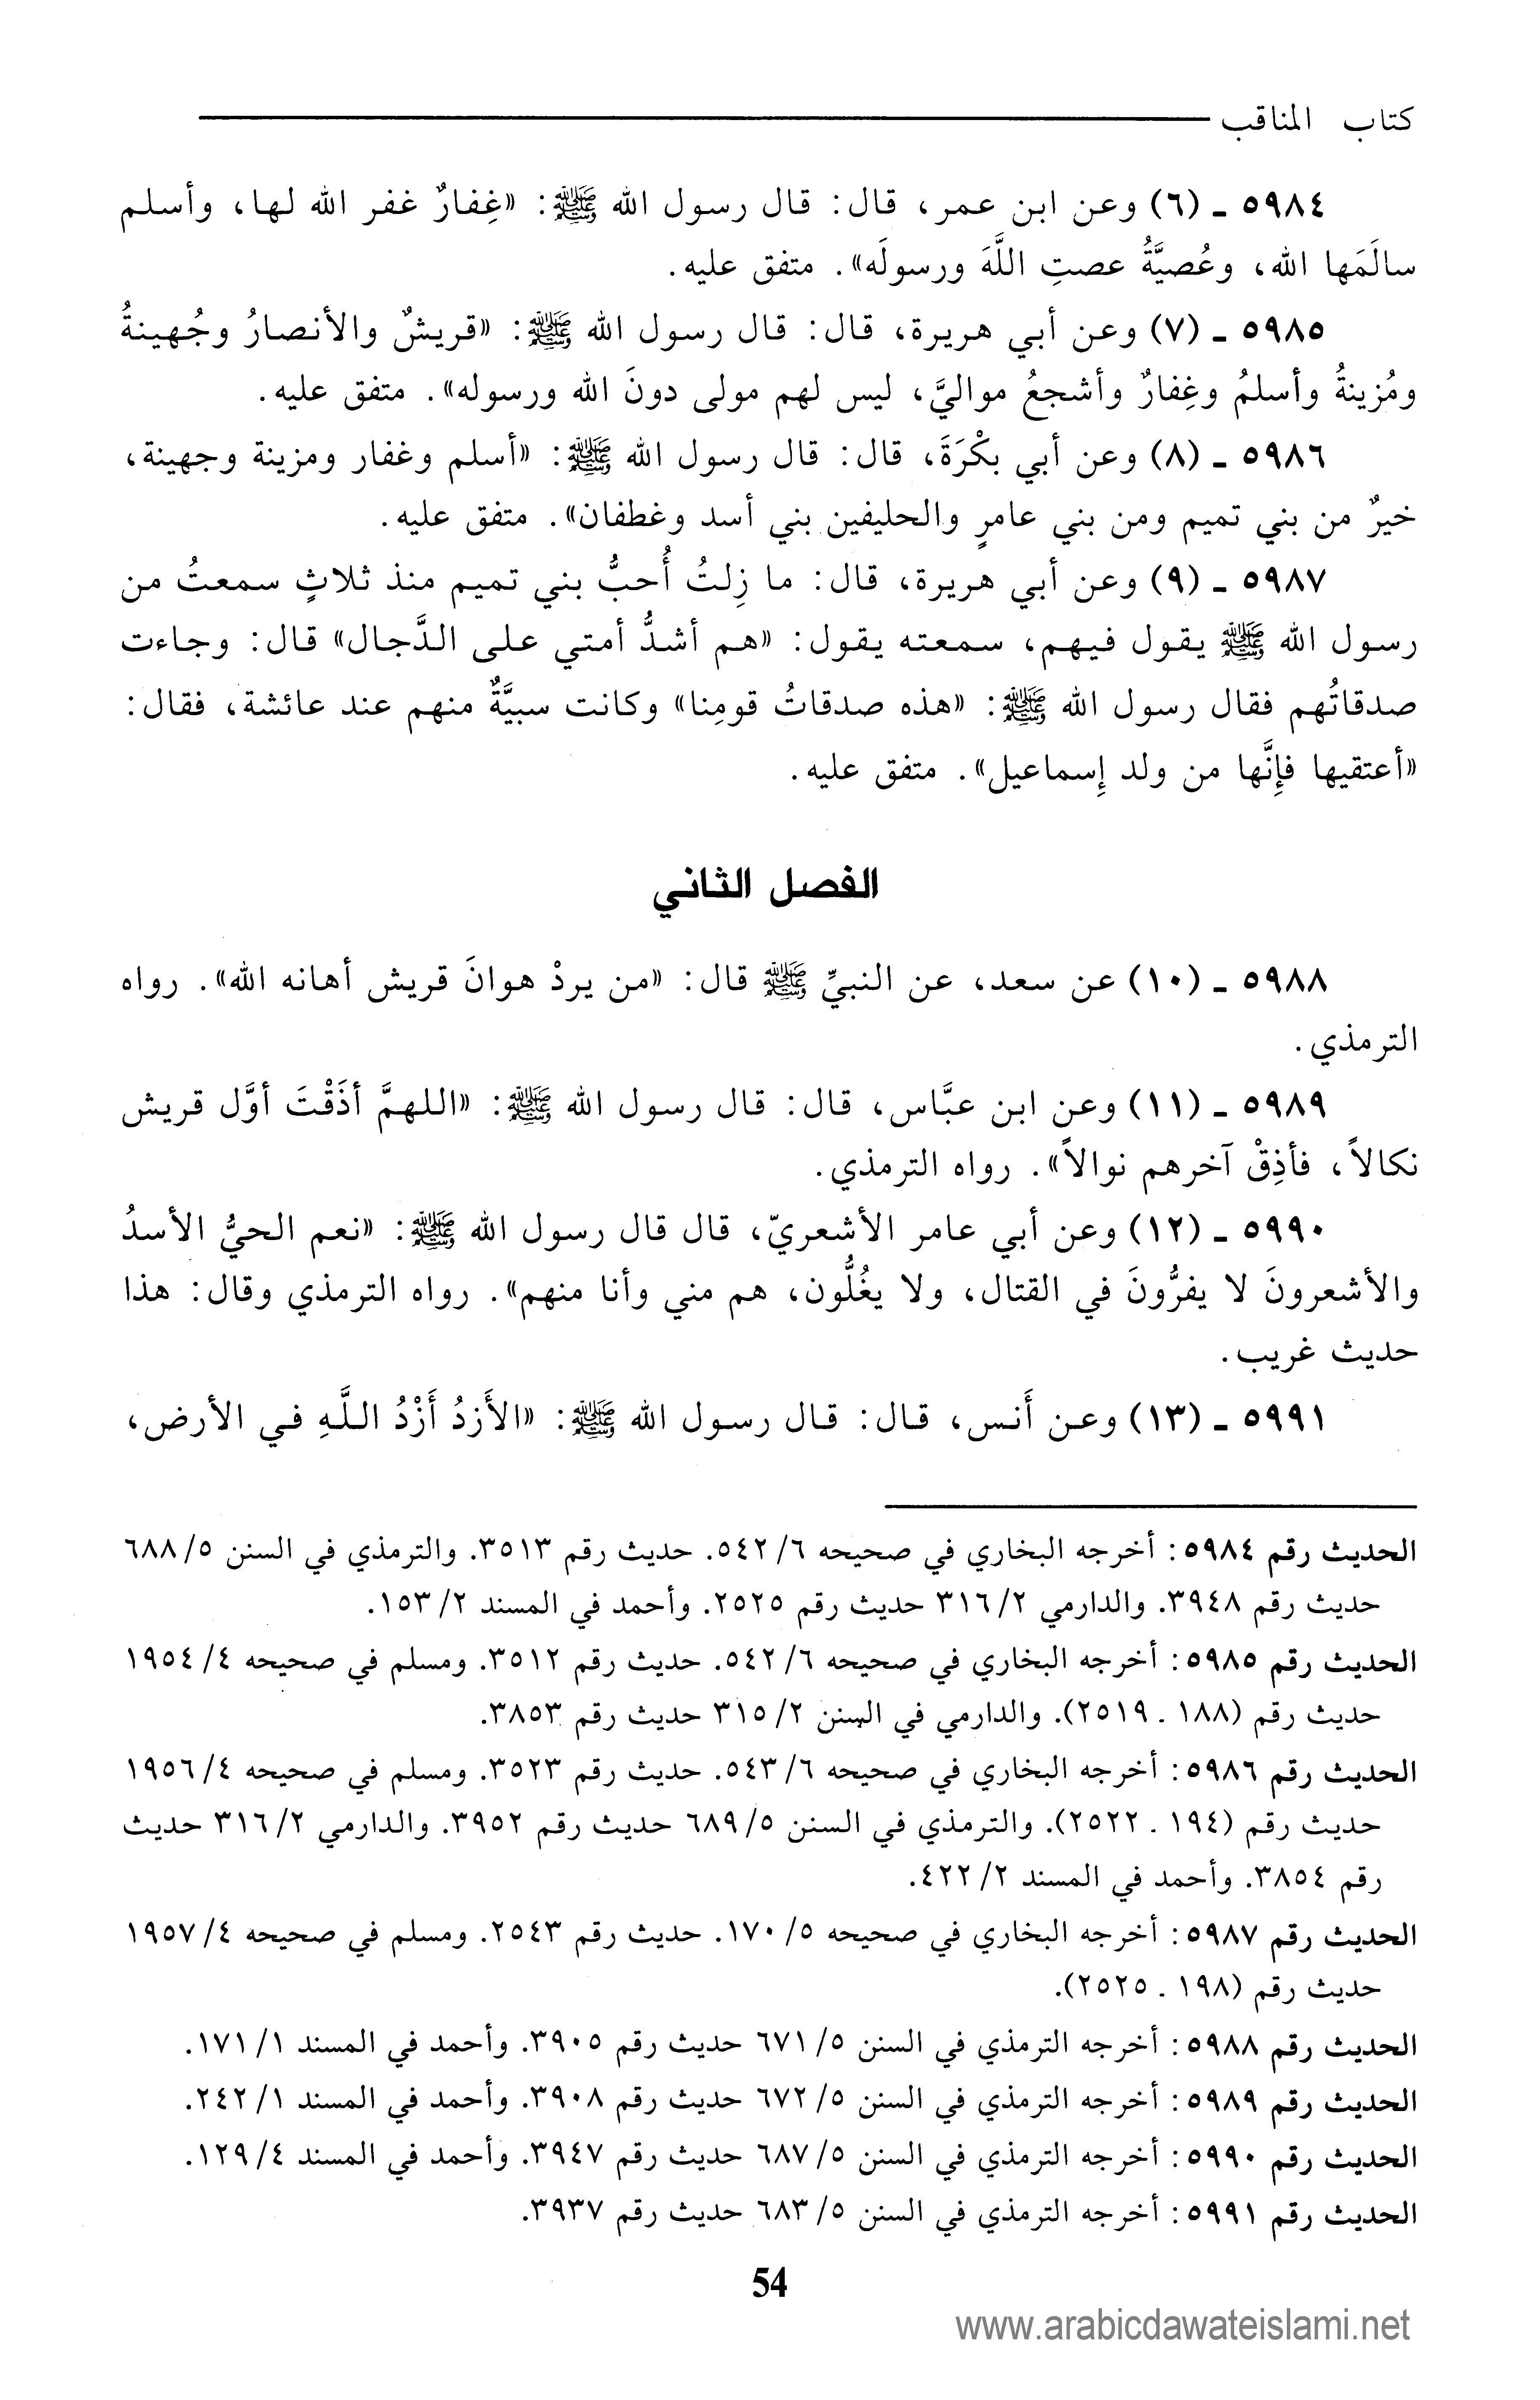 كتاب المناقب
٥٩٨٤ - (٦) وعن ابن عمر، قال: قال رسول الله ﷺ: «غِفارٌ غفر الله لها، وأسلم
سالَمَها الله، وعُصيَّةُ عصتِ اللَّهَ ورسولَه». متفق عليه.
٥٩٨٥ - (٧) وعن أبي هريرة، قال: قال رسول الله ﷺ: «قريشٌ والأنصارُ وجُهينةُ
ومُزينةُ وأسلمُ وغِفارٌ وأشجعُ مواليَّ، ليس لهم مولى دونَ الله ورسوله». متفق عليه.
٥٩٨٦ - (٨) وعن أبي بكْرَةَ، قال: قال رسول الله ﷺ: «أسلم وغفار ومزينة وجهينة،
خيرٌ من بني تميم ومن بني عامرٍ والحليفين بني أسد وغطفان». متفق عليه.
٥٩٨٧ - (٩) وعن أبي هريرة، قال: ما زِلتُ أُحبُّ بني تميم منذ ثلاثٍ سمعتُ من
رسول الله ﷺ يقول فيهم، سمعته يقول: «هم أشدُّ أمتي على الدَّجال» قال: وجاءت
صدقاتُهم فقال رسول الله ﷺ: «هذه صدقاتُ قومِنا» وكانت سبيَّةٌ منهم عند عائشة، فقال:
«أعتقيها فإِنَّها من ولد إِسماعيل». متفق عليه.
الفصل الثاني
٥٩٨٨ - (١٠) عن سعد، عن النبيِّ ﷺ قال: «من يردْ هوانَ قريش أهانه الله». رواه
الترمذي.
٥٩٨٩ - (١١) وعن ابن عبَّاس، قال: قال رسول الله ﷺ: «اللهمَّ أذَقْتَ أوَّل قريش
نكالاً، فأذِقْ آخرهم نوالاً». رواه الترمذي.
٥٩٩٠ - (١٢) وعن أبي عامر الأشعريّ، قال قال رسول الله ﷺ: «نعم الحيُّ الأسدُ
والأشعرونَ لا يفرُّونَ في القتال، ولا يغُلُّون، هم مني وأنا منهم». رواه الترمذي وقال: هذا
حديث غريب.
٥٩٩١ - (١٣) وعن أَنس، قال: قال رسول الله ﷺ: «الأَزدُ أَزْدُ اللَّهِ في الأرض،
الحديث رقم ٥٩٨٤: أخرجه البخاري في صحيحه ٦/ ٥٤٢. حديث رقم ٣٥١٣. والترمذي في السنن ٥/ ٦٨٨
حديث رقم ٣٩٤٨. والدارمي ٢/ ٣١٦ حديث رقم ٢٥٢٥. وأحمد في المسند ٢/ ١٥٣.
الحديث رقم ٥٩٨٥: أخرجه البخاري في صحيحه ٦/ ٥٤٢. حديث رقم ٣٥١٢. ومسلم في صحيحه ٤/ ١٩٥٤
حديث رقم (١٨٨ . ٢٥١٩). والدارمي في السنن ٢/ ٣١٥ حديث رقم ٣٨٥٣.
الحديث رقم ٥٩٨٦: أخرجه البخاري في صحيحه ٦/ ٥٤٣. حديث رقم ٣٥٢٣. ومسلم في صحيحه ٤/ ١٩٥٦
حديث رقم (١٩٤ . ٢٥٢٢). والترمذي في السنن ٥/ ٦٨٩ حديث رقم ٣٩٥٢. والدارمي ٢/ ٣١٦ حديث
رقم ٣٨٥٤. وأحمد في المسند ٢/ ٤٢٢.
الحديث رقم ٥٩٨٧: أخرجه البخاري في صحيحه ٥/ ١٧٠. حديث رقم ٢٥٤٣. ومسلم في صحيحه ٤/ ١٩٥٧
حديث رقم (١٩٨ . ٢٥٢٥).
الحديث رقم ٥٩٨٨: أخرجه الترمذي في السنن ٥/ ٦٧١ حديث رقم ٣٩٠٥. وأحمد في المسند ١/ ١٧١.
الحديث رقم ٥٩٨٩: أخرجه الترمذي في السنن ٥/ ٦٧٢ حديث رقم ٣٩٠٨. وأحمد في المسند ١/ ٢٤٢.
الحديث رقم ٥٩٩٠: أخرجه الترمذي في السنن ٥/ ٦٨٧ حديث رقم ٣٩٤٧. وأحمد في المسند ٤/ ١٢٩.
الحديث رقم ٥٩٩١: أخرجه الترمذي في السنن ٥/ ٦٨٣ حديث رقم ٣٩٣٧.
54
www.arabicdawateislami.net